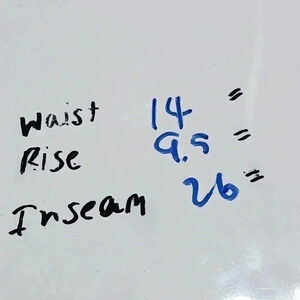 Waist 14"
Rise 9.5"
Inseam 26"